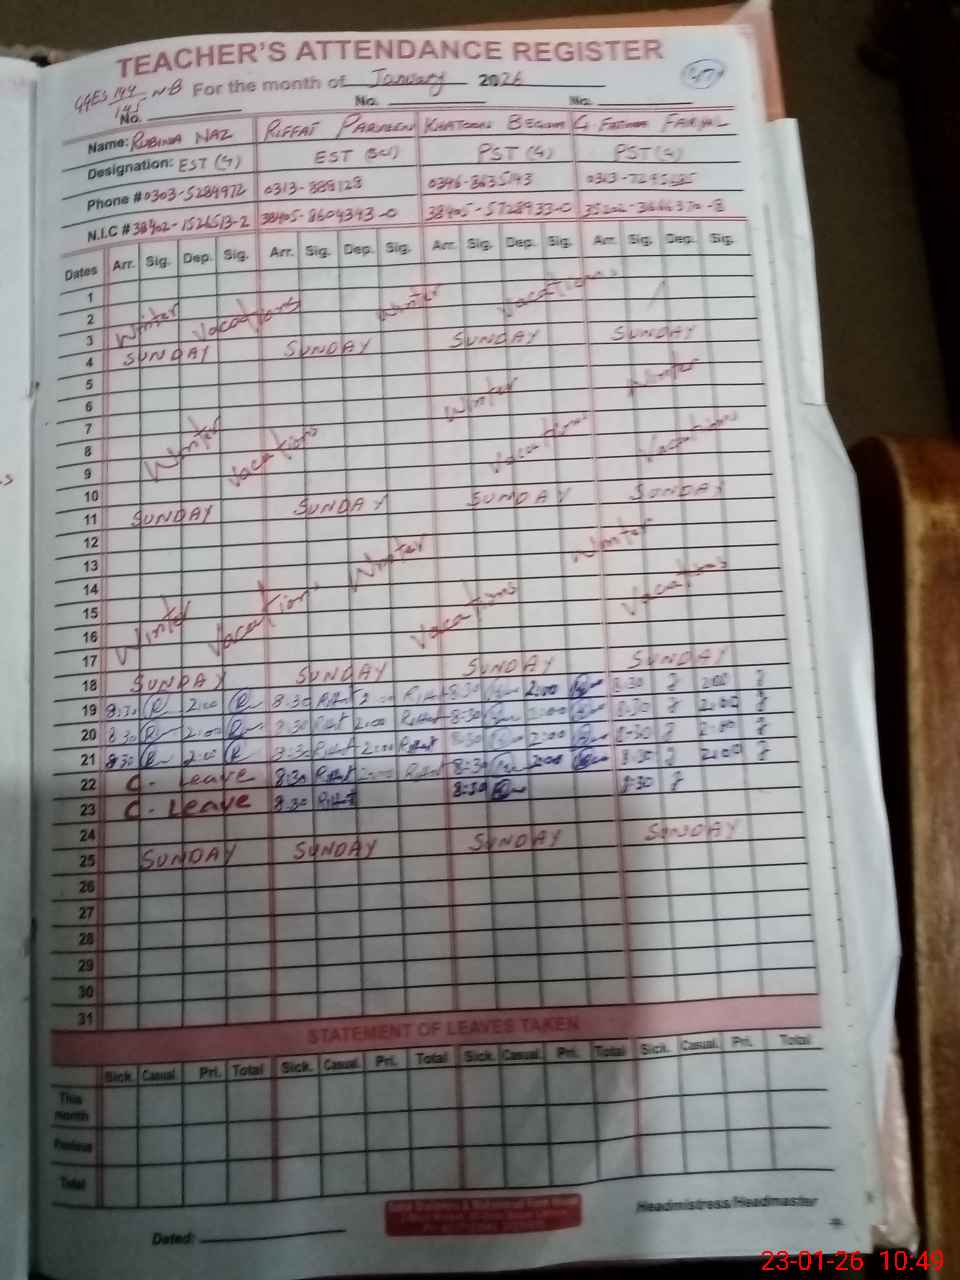 TEACHER'S ATTENDANCE REGISTER
For the month of January 2026
No. No. No.
Name: RUBINA NAZ RIFFAT PARVEEN KHATOON BEGUM G. FATIMA
Designation: EST (G) EST (SCI) PST (G) PST (G)
Phone # 0303-5284972 0313-888128 0346-8635143
N.I.C # 38402-1526513-2 38405-8604343-0 38405-5728933-0
Dates Arr. Sig. Dep. Sig. Arr. Sig. Dep. Sig. Arr. Sig. Dep. Sig. Arr. Sig. Dep. Sig.
1
2 Winter Vacations Winter Vacations
3
4 SUNDAY SUNDAY SUNDAY SUNDAY
5
6
7 Winter Winter
8 Winter Vacations Vacations Vacations
9
10
11 SUNDAY SUNDAY SUNDAY SUNDAY
12
13
14 Winter Winter
15 Vacations Vacations
16 Winter Vacations
17
18 SUNDAY SUNDAY SUNDAY SUNDAY
19 8:30 2:00 8:30 Riffat 2:00 Riffat 8:30 2:00 8:30 2:00
20 8:30 2:00 8:30 Riffat 2:00 Riffat 8:30 2:00 8:30 2:00
21 8:30 2:00 8:30 Riffat 2:00 Riffat 8:30 2:00 8:30 2:00
22 C - Leave 8:30 Riffat 2:00 Riffat 8:30 2:00 8:30 2:00
23 C - Leave 8:30 Riffat 8:30 8:30
24
25 SUNDAY SUNDAY SUNDAY SUNDAY
26
27
28
29
30
31
STATEMENT OF LEAVES TAKEN
Sick. Casual. Pri. Total Sick. Casual. Pri. Total Sick. Casual. Pri. Total Sick. Casual. Pri. Total
This month
Total
Headmistress/Headmaster
Dated:
23-01-26 10:49